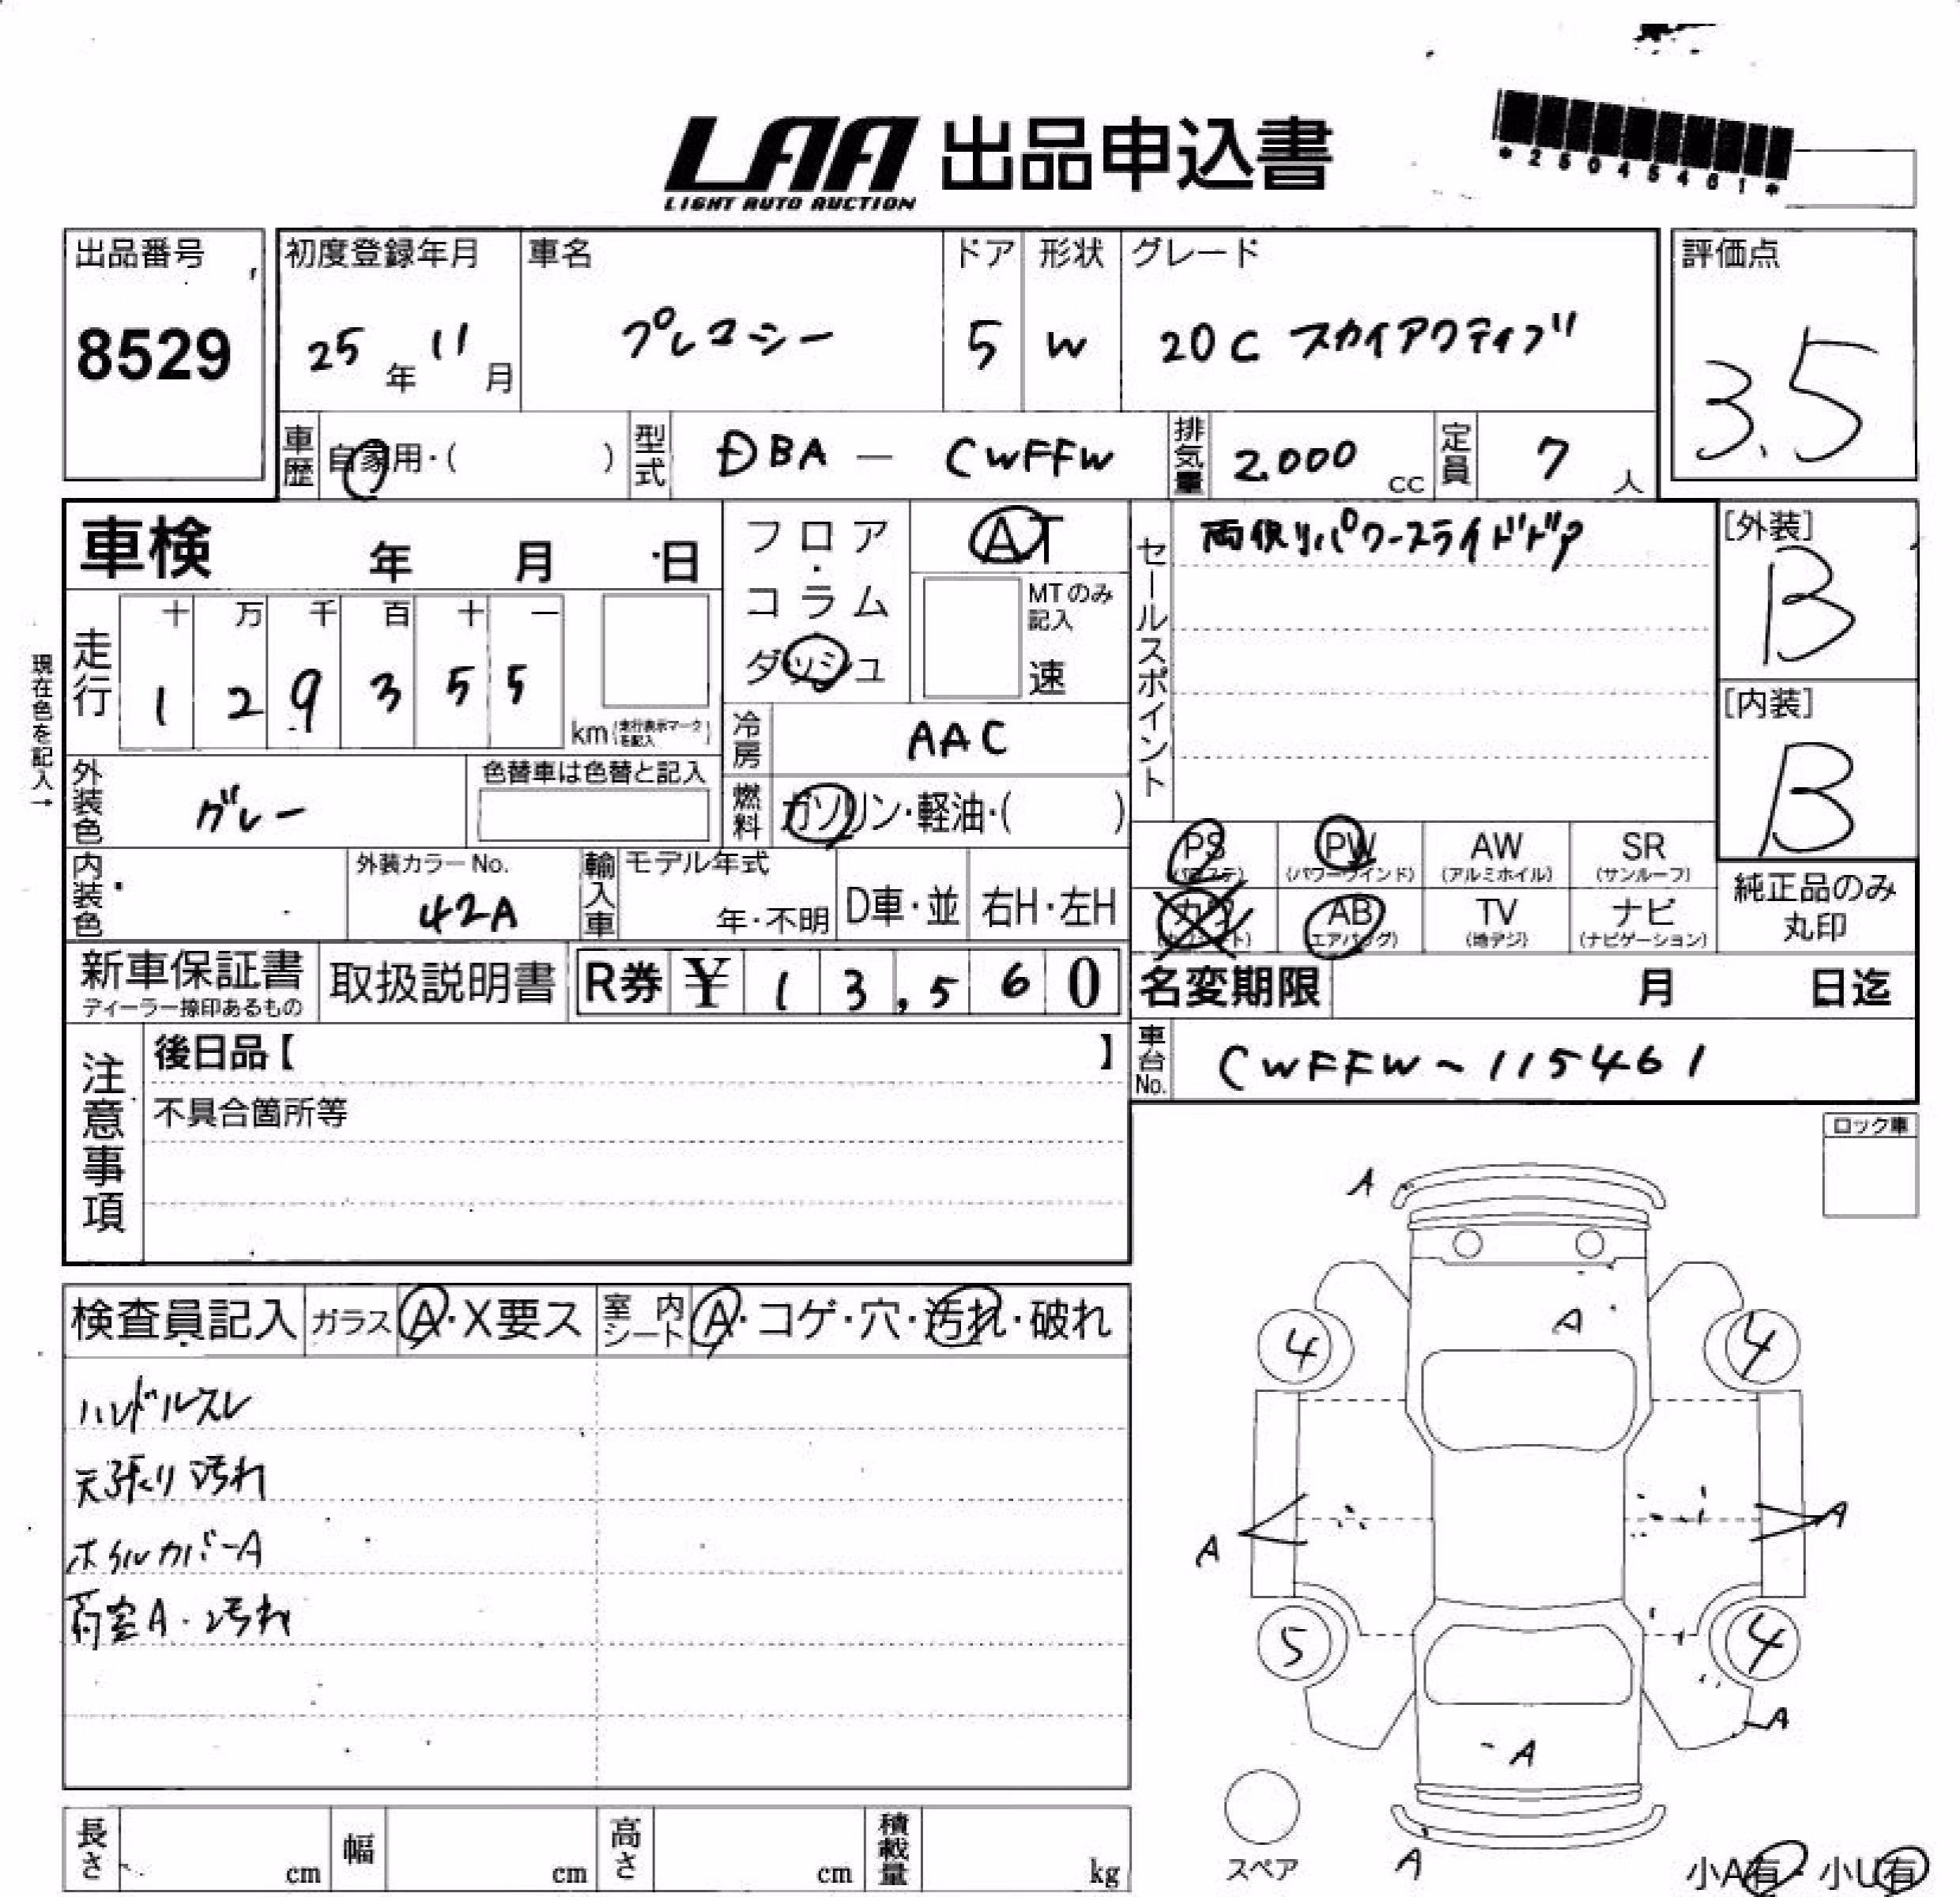 LAA 出品申込書
LIGHT AUTO AUCTION
*25045461*
出品番号
8529
初度登録年月
25年 11月
車名
プレマシー
ドア
5
形状
W
グレード
20C スカイアクティブ
評価点
3.5
車歴
自家用・( )
型式
DBA - CWFFW
排気量
2.000 cc
定員
7 人
車検 年 月 日
フロア・
コラム
ダッシュ
AT
MTのみ
記入
速
セールスポイント
両側リパワースライドドア
[外装]
B
[内装]
B
現在色を記入→
走行
十 万 千 百 十 一
1 2 9 3 5 5
km (走行表示マークを記入)
冷房
AAC
外装色
グレー
色替車は色替と記入
燃料
ガソリン・軽油・( )
PS
(パワステ)
PW
(パワーウインド)
AW
(アルミホイル)
SR
(サンルーフ)
AB
(エアバッグ)
TV
(地デジ)
ナビ
(ナビゲーション)
純正品のみ
丸印
内装色
外装カラーNo.
42A
輸入車
モデル年式
年・不明
D車・並
右H・左H
新車保証書
ディーラー捺印あるもの
取扱説明書
R券 ¥ 1 3,5 6 0
名変期限 月 日迄
注意事項
後日品【 】
不具合箇所等
車台No.
CWFFW~115461
ロック車
検査員記入
ガラス
A・X要ス
室内シート
A・コゲ・穴・汚れ・破れ
ハンドルスレ
天張り汚れ
ホイルカバーA
荷室A・汚れ
A
A
4
4
A
A
5
4
A
A
A
スペア
小A有・小U有
長さ cm
幅 cm
高さ cm
積載量 kg